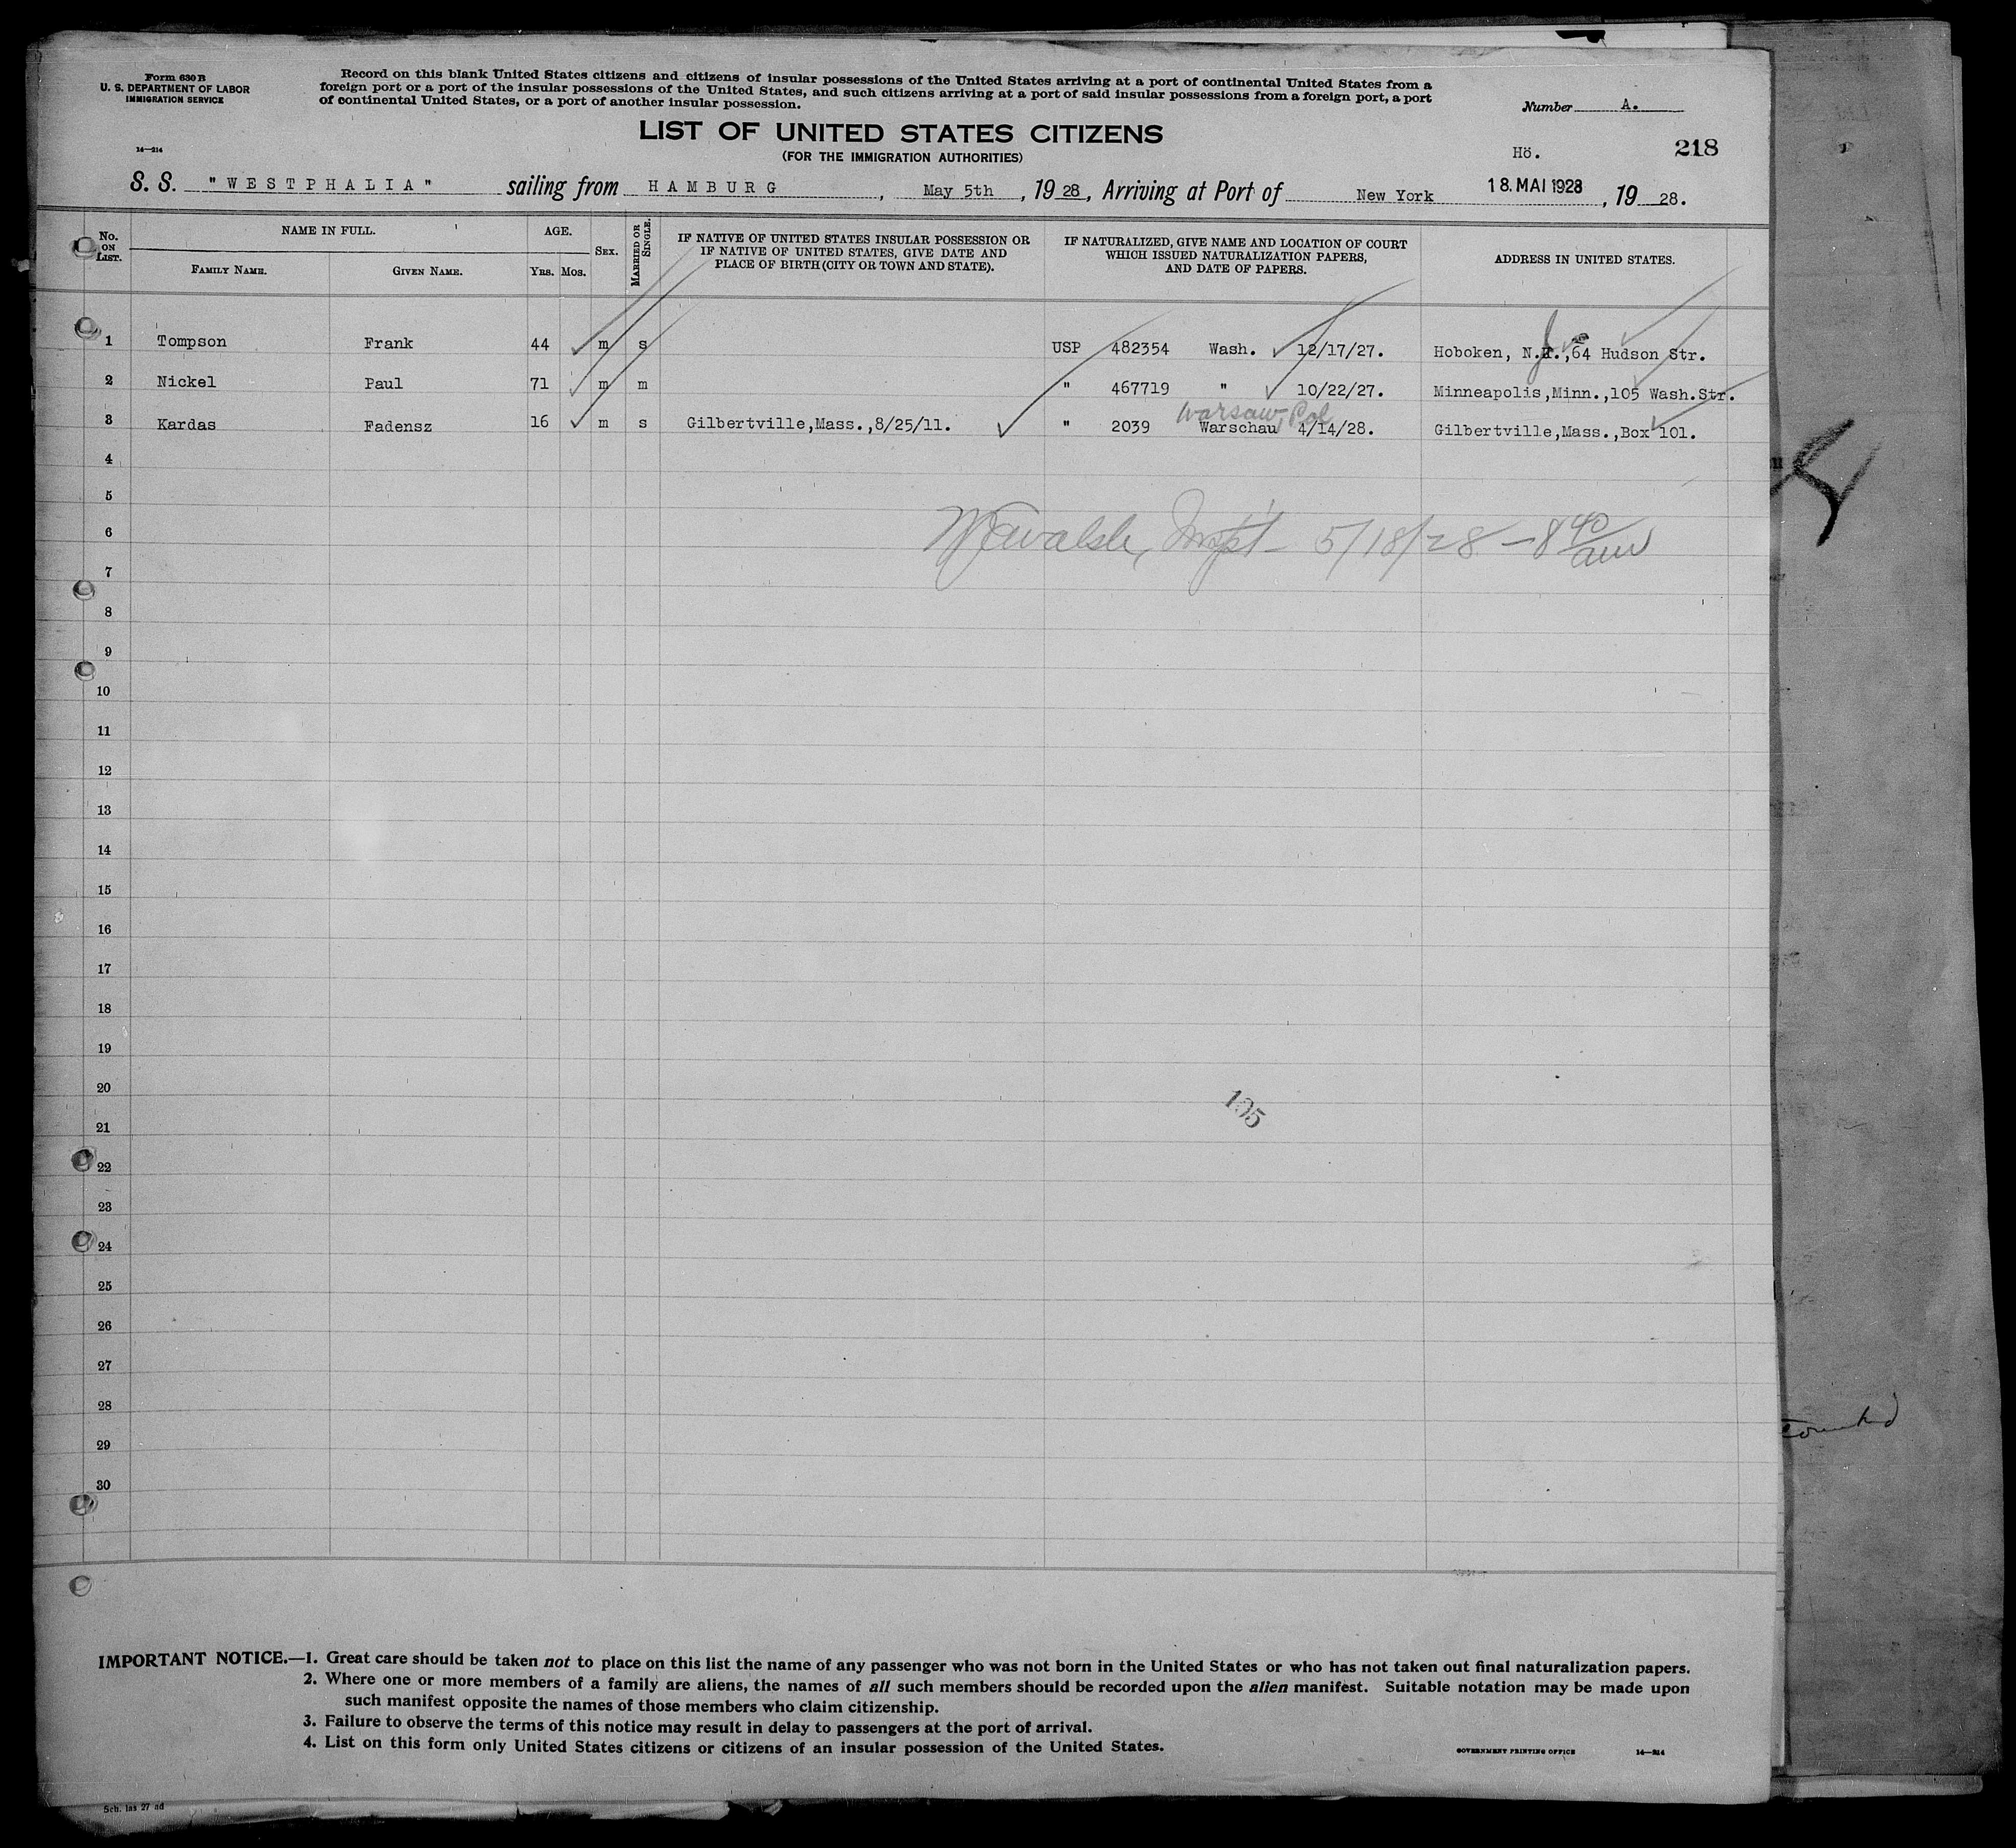 Form 630 B
U. S. DEPARTMENT OF LABOR
IMMIGRATION SERVICE
14—214
Record on this blank United States citizens and citizens of insular possessions of the United States arriving at a port of continental United States from a
foreign port or a port of the insular possessions of the United States, and such citizens arriving at a port of said insular possessions from a foreign port, a port
of continental United States, or a port of another insular possession.
Number A.
LIST OF UNITED STATES CITIZENS
(FOR THE IMMIGRATION AUTHORITIES)
Hö.
218
S. S. "WESTPHALIA" sailing from HAMBURG, May 5th, 1928, Arriving at Port of New York 18. MAI 1928, 1928.
No. ON LIST. NAME IN FULL. FAMILY NAME. GIVEN NAME. AGE. YRS. MOS. SEX. MARRIED OR SINGLE. IF NATIVE OF UNITED STATES INSULAR POSSESSION OR IF NATIVE OF UNITED STATES, GIVE DATE AND PLACE OF BIRTH (CITY OR TOWN AND STATE). IF NATURALIZED, GIVE NAME AND LOCATION OF COURT WHICH ISSUED NATURALIZATION PAPERS, AND DATE OF PAPERS. ADDRESS IN UNITED STATES.
1 Tompson Frank 44 m s USP 482354 Wash. 12/17/27. Hoboken, N.J., 64 Hudson Str.
2 Nickel Paul 71 m m " 467719 " 10/22/27. Minneapolis,Minn.,105 Wash.Str.
Warsaw, Pol
3 Kardas Fadensz 16 m s Gilbertville,Mass.,8/25/11. " 2039 Warschau 4/14/28. Gilbertville,Mass.,Box 101.
4
5
6 Walsh, Inspt - 5/18/28 - 8 40 am
7
8
9
10
11
12
13
14
15
16
17
18
19
20
105
21
22
23
24
25
26
27
28
29
30
IMPORTANT NOTICE.—1. Great care should be taken not to place on this list the name of any passenger who was not born in the United States or who has not taken out final naturalization papers.
2. Where one or more members of a family are aliens, the names of all such members should be recorded upon the alien manifest. Suitable notation may be made upon
such manifest opposite the names of those members who claim citizenship.
3. Failure to observe the terms of this notice may result in delay to passengers at the port of arrival.
4. List on this form only United States citizens or citizens of an insular possession of the United States.
GOVERNMENT PRINTING OFFICE 14—214
Sch. las 27 ad